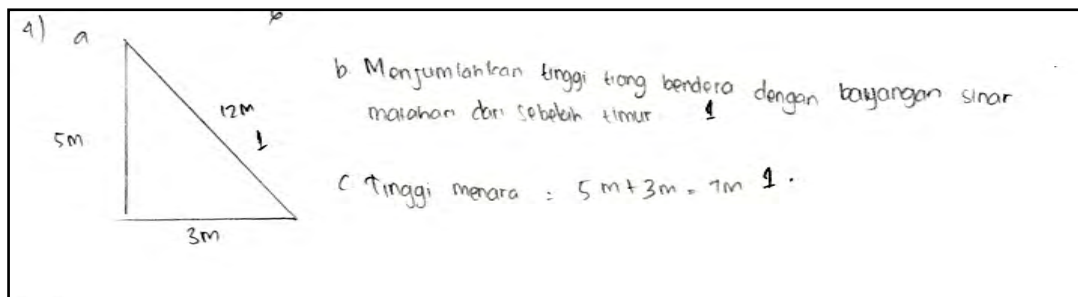 4) a
12m
1
5m
3m
b Menjumlahkan tinggi tiang bendera dengan bayangan sinar
matahari dari sebelah timur 1
c Tinggi menara : 5 m + 3m = 7m 1.